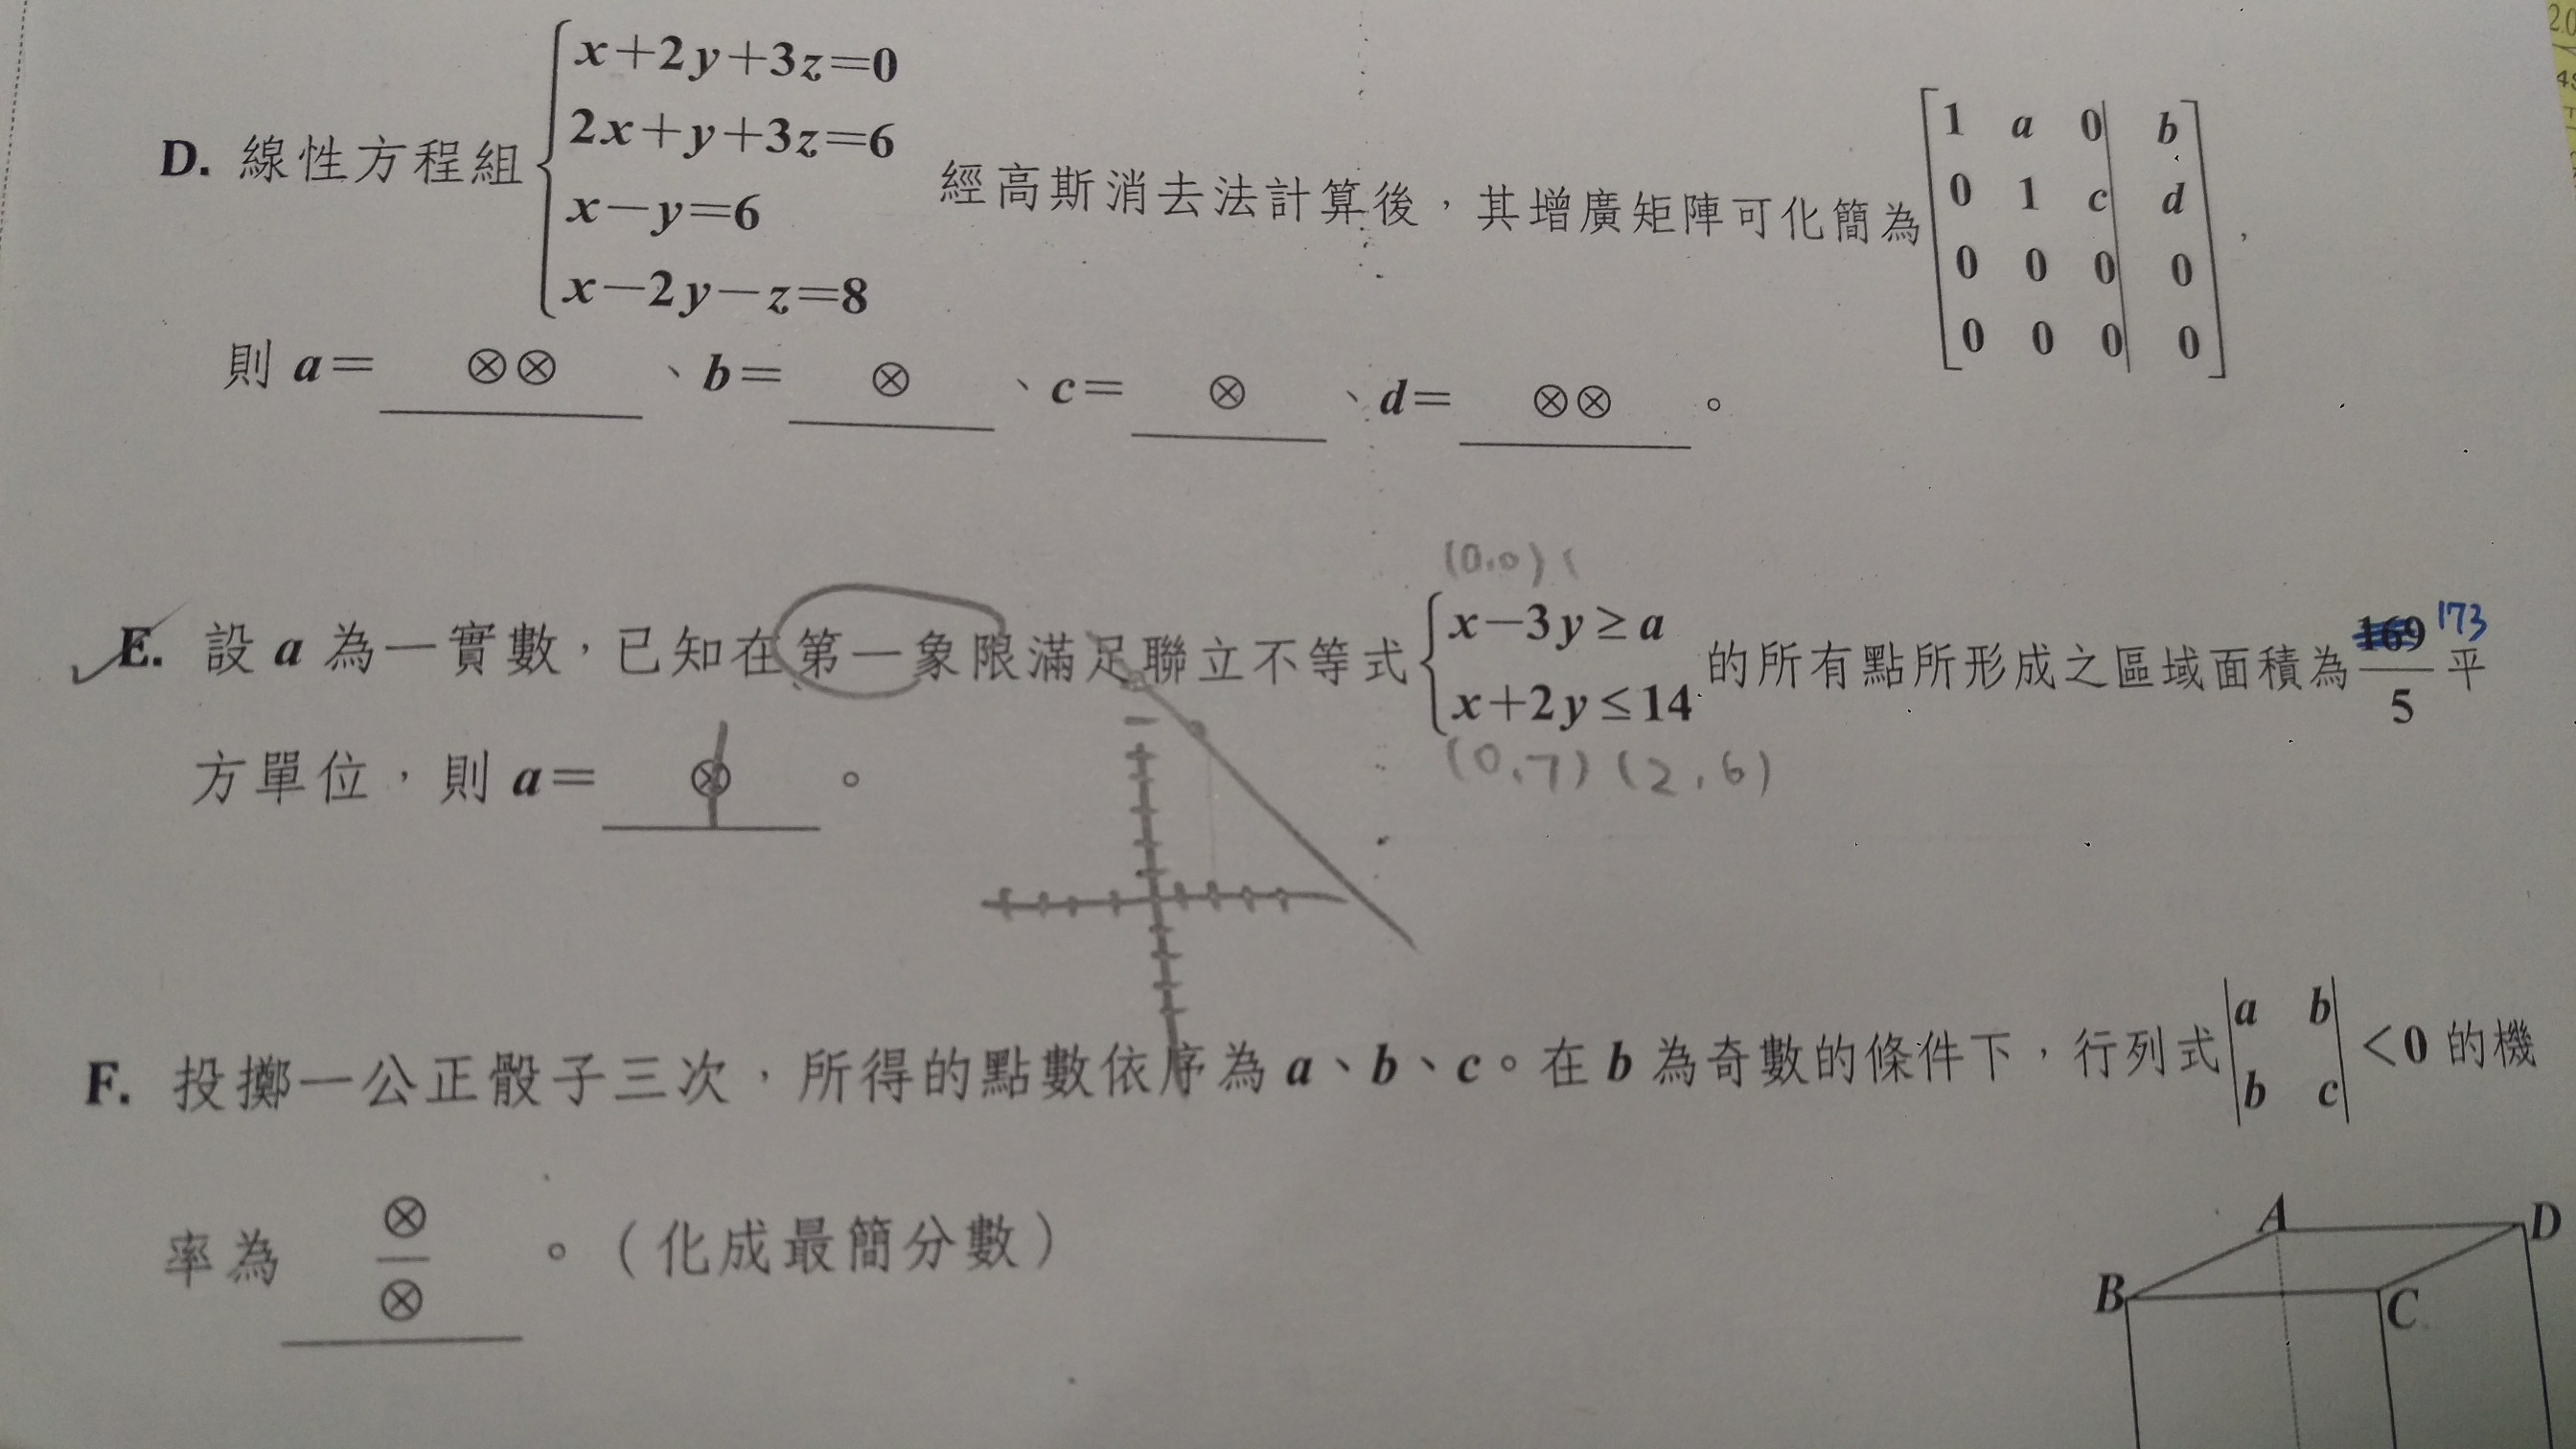 D. 線性方程組 { x+2y+3z=0
2x+y+3z=6
x-y=6
x-2y-z=8
經高斯消去法計算後，其增廣矩陣可化簡為
1 a 0 b
0 1 c d
0 0 0 0
0 0 0 0 ，
則 a= ⊗⊗ 、b= ⊗ 、c= ⊗ 、d= ⊗⊗ 。
(0,0) (
E. 設 a 為一實數，已知在第一象限滿足聯立不等式 { x-3y≥a
x+2y≤14
的所有點所形成之區域面積為 169 173
5 平
(0,7) (2,6)
方單位，則 a= ⊗ 。
F. 投擲一公正骰子三次，所得的點數依序為 a、b、c。在 b 為奇數的條件下，行列式 |a b
b c| <0 的機
率為 ⊗
⊗ 。（化成最簡分數）
A
D
B
C